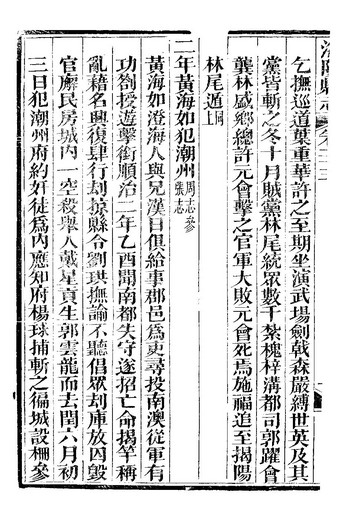 乞撫巡道葉重華許之至期坐演武場劍戟森嚴縛世英及其
黨皆斬之冬十月賊黨林尾統眾數千紮槐梓溝都司郭躍會
龔林感鄉總許元會擊之官軍大敗元會死焉施福追至揭陽
林尾遁上同
二年黃海如犯潮州周志參張志
黃海如澄海人與兄漢日俱給事郡邑爲吏尋投南澳從軍有
功劄授遊擊銜順治二年乙酉聞南都失守遂招亡命揭竿稱
亂藉名興復肆行刦掠縣令劉珙撫諭不聽倡眾刦庫放囚毀
官廨民房城內一空殺舉人戴星貢生郭雲龍而去閏六月初
三日犯潮州府約奸徒爲內應知府楊球捕斬之徧城設柵參